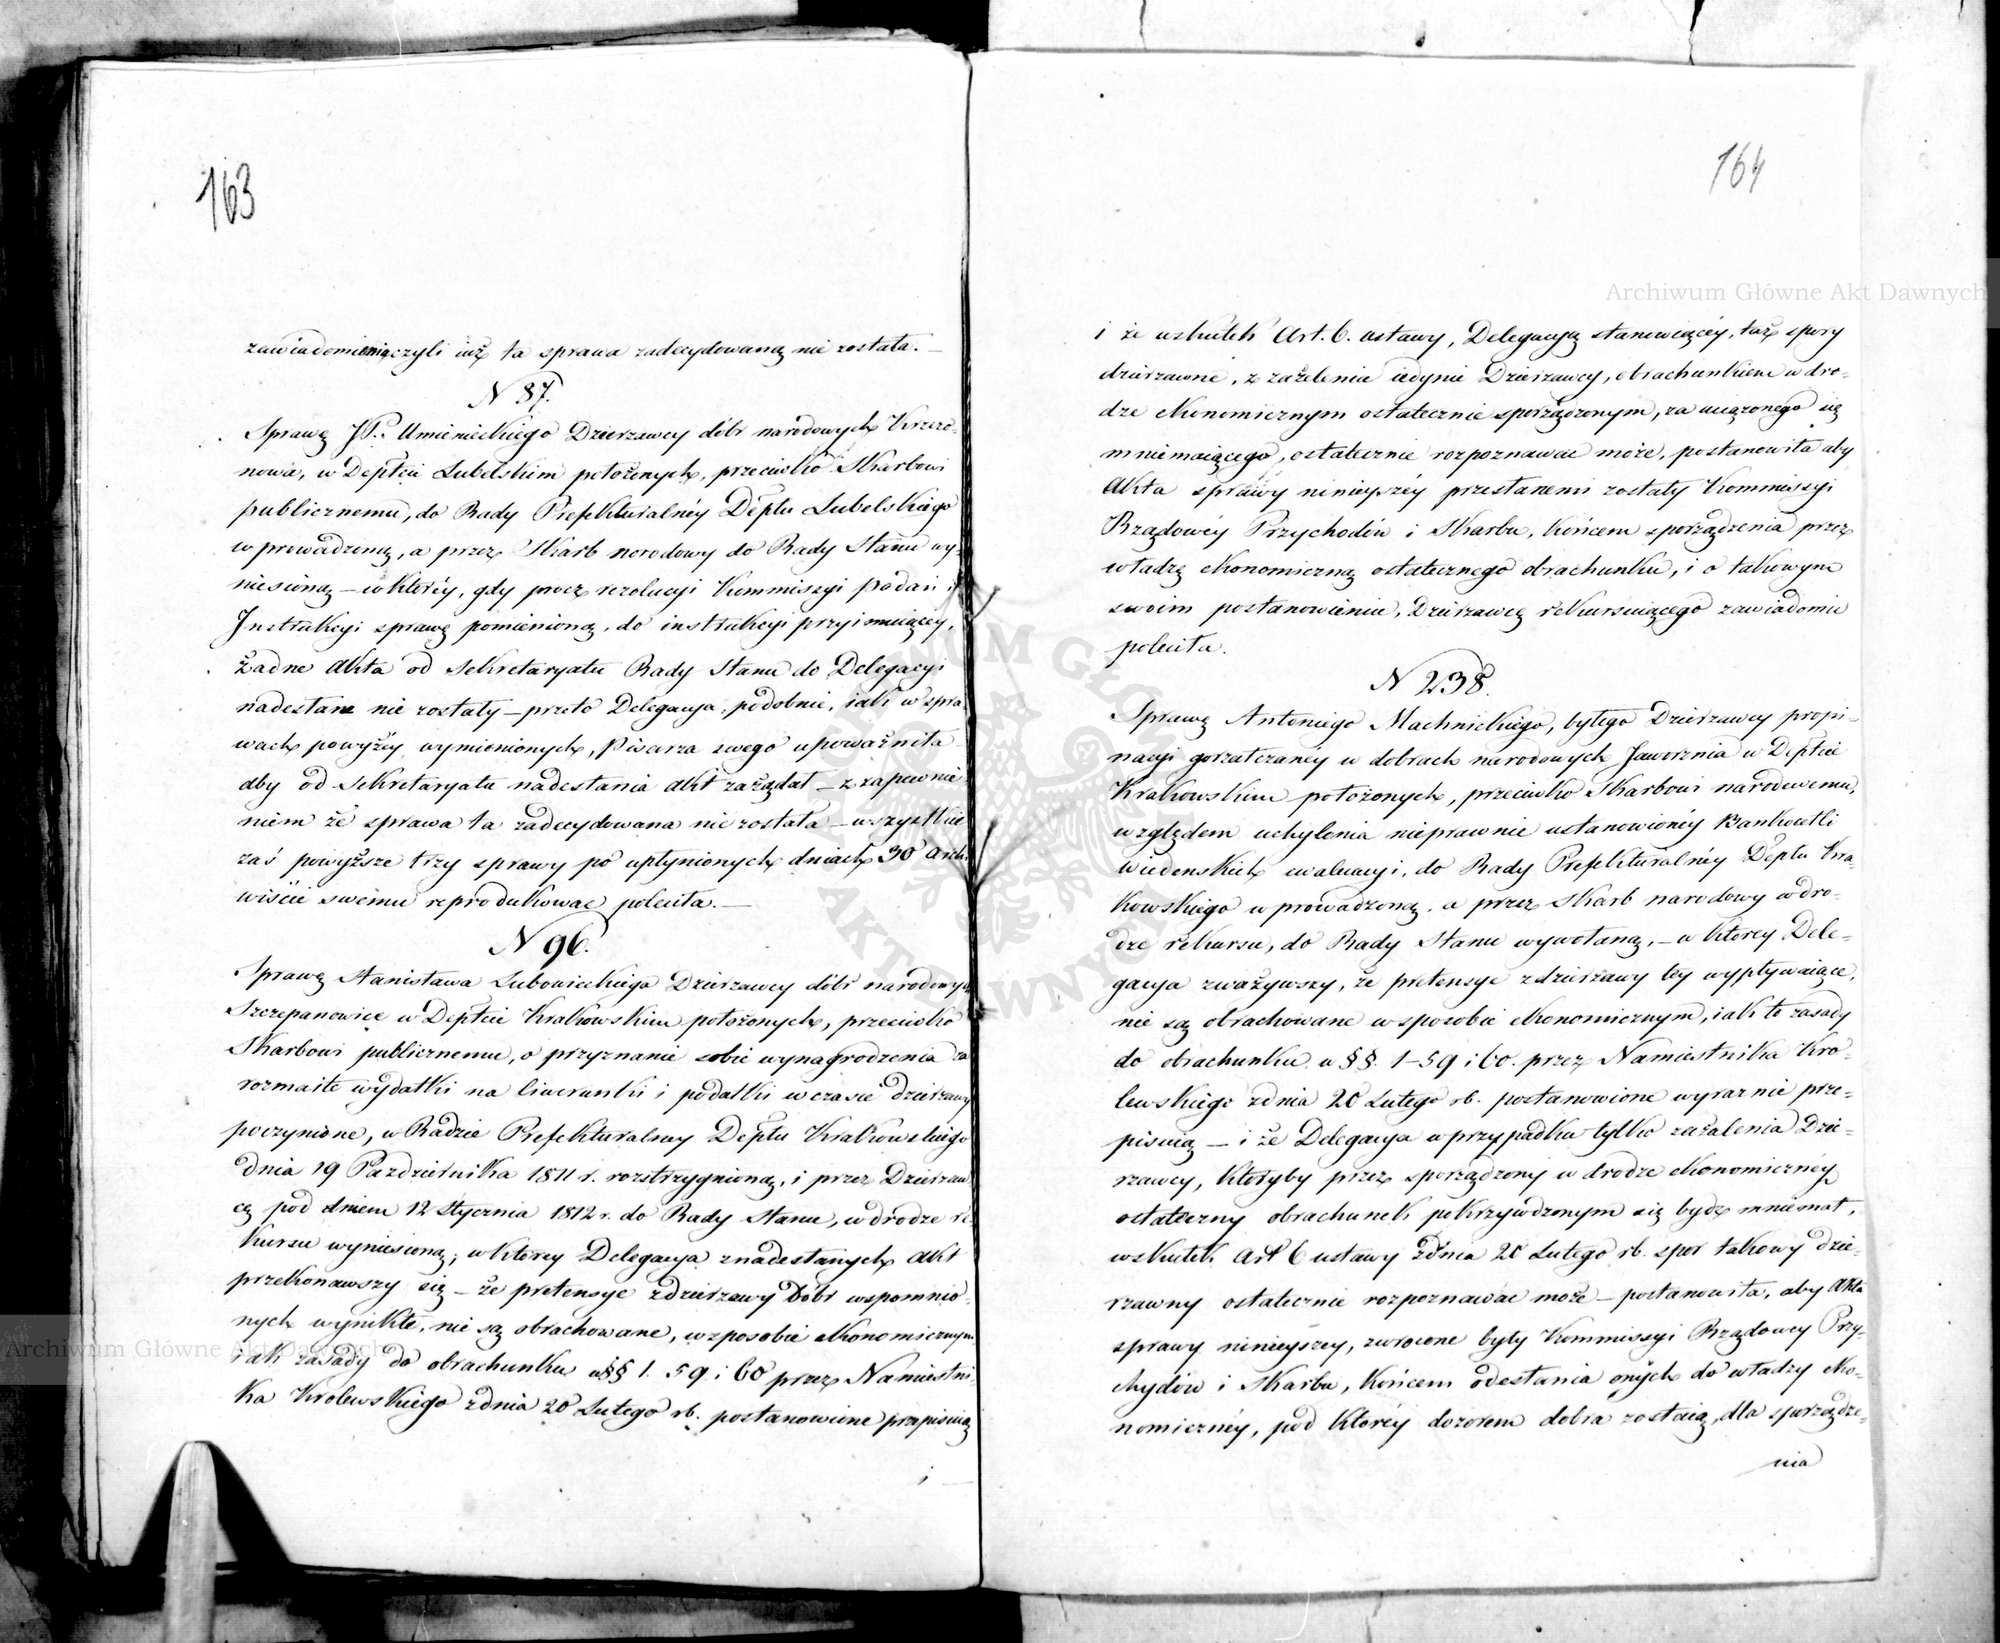 163
zawiadomienia czyli iuż ta sprawa zadecydowaną nie została. —
N 87.
Sprawę JP. Umienieckiego Dzierzawcy dóbr narodowych Krzczo-
nowa, w Depcie Lubelskim położonych, przeciwko Skarbowi
publicznemu, do Rady Prefekturalnéy Deptu Lubelskiego
wprowadzoną, a przez Skarb narodowy do Rady Stanu wy-
niesioną — w któréy, gdy procz rezolucyi Kommissyi podań i
Instrukcyi sprawę pomienioną, do instrukcyi przyimuiącey,
żadne Akta od Sekretaryatu Rady Stanu do Delegacyi
nadesłane nie zostały — przeto Delegacya, podobnie, iak w spra-
wach powyżéy wymienionych, Pisarza swego upoważniła
aby od Sekretaryatu nadesłania akt zażądał — z zapewnie-
niem że sprawa ta zadecydowana nie została — wszystkie
zaś powyższe trzy sprawy po upłynionych dniach 30 Archi-
wiście swemu reprodukować poleciła. —
N 96.
Sprawę Stanisława Lubowieckiego Dzierzawcy dóbr narodowych
Szczepanowice w Depcie Krakowskim położonych, przeciwko
Skarbowi publicznemu, o przyznanie sobie wynagrodzenia za
rozmaite wydatki na liwerunki i podatki w czasie dzierzawy
poczynione, w Radzie Prefekturalney Deptu Krakowskiego
dnia 19 Pazdziernika 1811 r. rozstrzygnioną, i przez Dzierzaw-
cę pod dniem 12 Stycznia 1812 r. do Rady Stanu, w drodze re-
kursu wyniesioną; w ktorey Delegacya z nadesłanych Akt
przekonawszy się — że pretensye z dzierzawy Dóbr wspomnio-
nych wynikłe, nie są obrachowane, w sposobie ekonomicznym
iak zasady do obrachunku w §§ 1. 59 i 60 przez Namiestni-
ka Krolewskiego z dnia 20 Lutego rb. postanowione przepisuią
i —
164
i że wskutek Art. 6. ustawy, Delegacyą stanowiącéy, też spory
dzierzawne, z zażelenia iedynie Dzierzawcy, obrachunkiem w dro-
dze ekonomicznym ostatecznie sporządzonym, za uciążonego się
mniemaiącego, ostatecznie rozpoznawać może, postanowiła aby
Akta sprawy ninieyszéy przesłanemi zostały Kommissyi
Rządowéy Przychodów i Skarbu, Końcem sporządzenia przez
władzę ekonomiczną ostatecznego obrachunku, i o takowym
swoim postanowieniu, Dzierzawcę rekursuiącego zawiadomić
poleciła.
N 238.
Sprawę Antoniego Machnickiego, byłego Dzierzawcy propi-
nacyi gorzałczanéy w dobrach narodowych Jaworznia w Depcie
Krakowskim położonych, przeciwko Skarbowi narodowemu,
względem uchylenia nieprawnie ustanowionéy Bankocetli
Wiedenskich ewaluacyi, do Rady Prefekturalnéy Deptu Kra-
kowskiego wprowadzoną, a przez Skarb narodowy w dro-
dze rekursu, do Rady Stanu wywołaną, — w ktorey Dele-
gacya zważywszy, że pretensye z dzierzawy tey wypływaiące,
nie są obrachowane w sposobie ekonomicznym, iak to zasady
do obrachunku w §§. 1–59 i 60. przez Namiestnika Kro-
lewskiego z dnia 20 Lutego rb. postanowione wyraznie prze-
pisuią — i że Delegacya w przypadku tylko zażalenia Dzie-
rzawcy, któryby przez sporządzony w drodze ekonomicznéy
ostateczny obrachunek pokrzywdzonym się bydź mniemał,
wskutek Art 6 ustawy z dnia 20 Lutego rb. spor takowy dzie-
rzawny ostatecznie rozpoznawać może — postanowiła, aby Akta
sprawy ninieyszey, zwrocone były Kommissyi Rządowey Przy-
chydów i Skarbu, Końcem odesłania onych do władzy eko-
nomicznéy, pod któréy dozorem dobra zostaią, dla sporządze-
nia
Archiwum Główne Akt Dawnych
Archiwum Główne Akt Dawnych